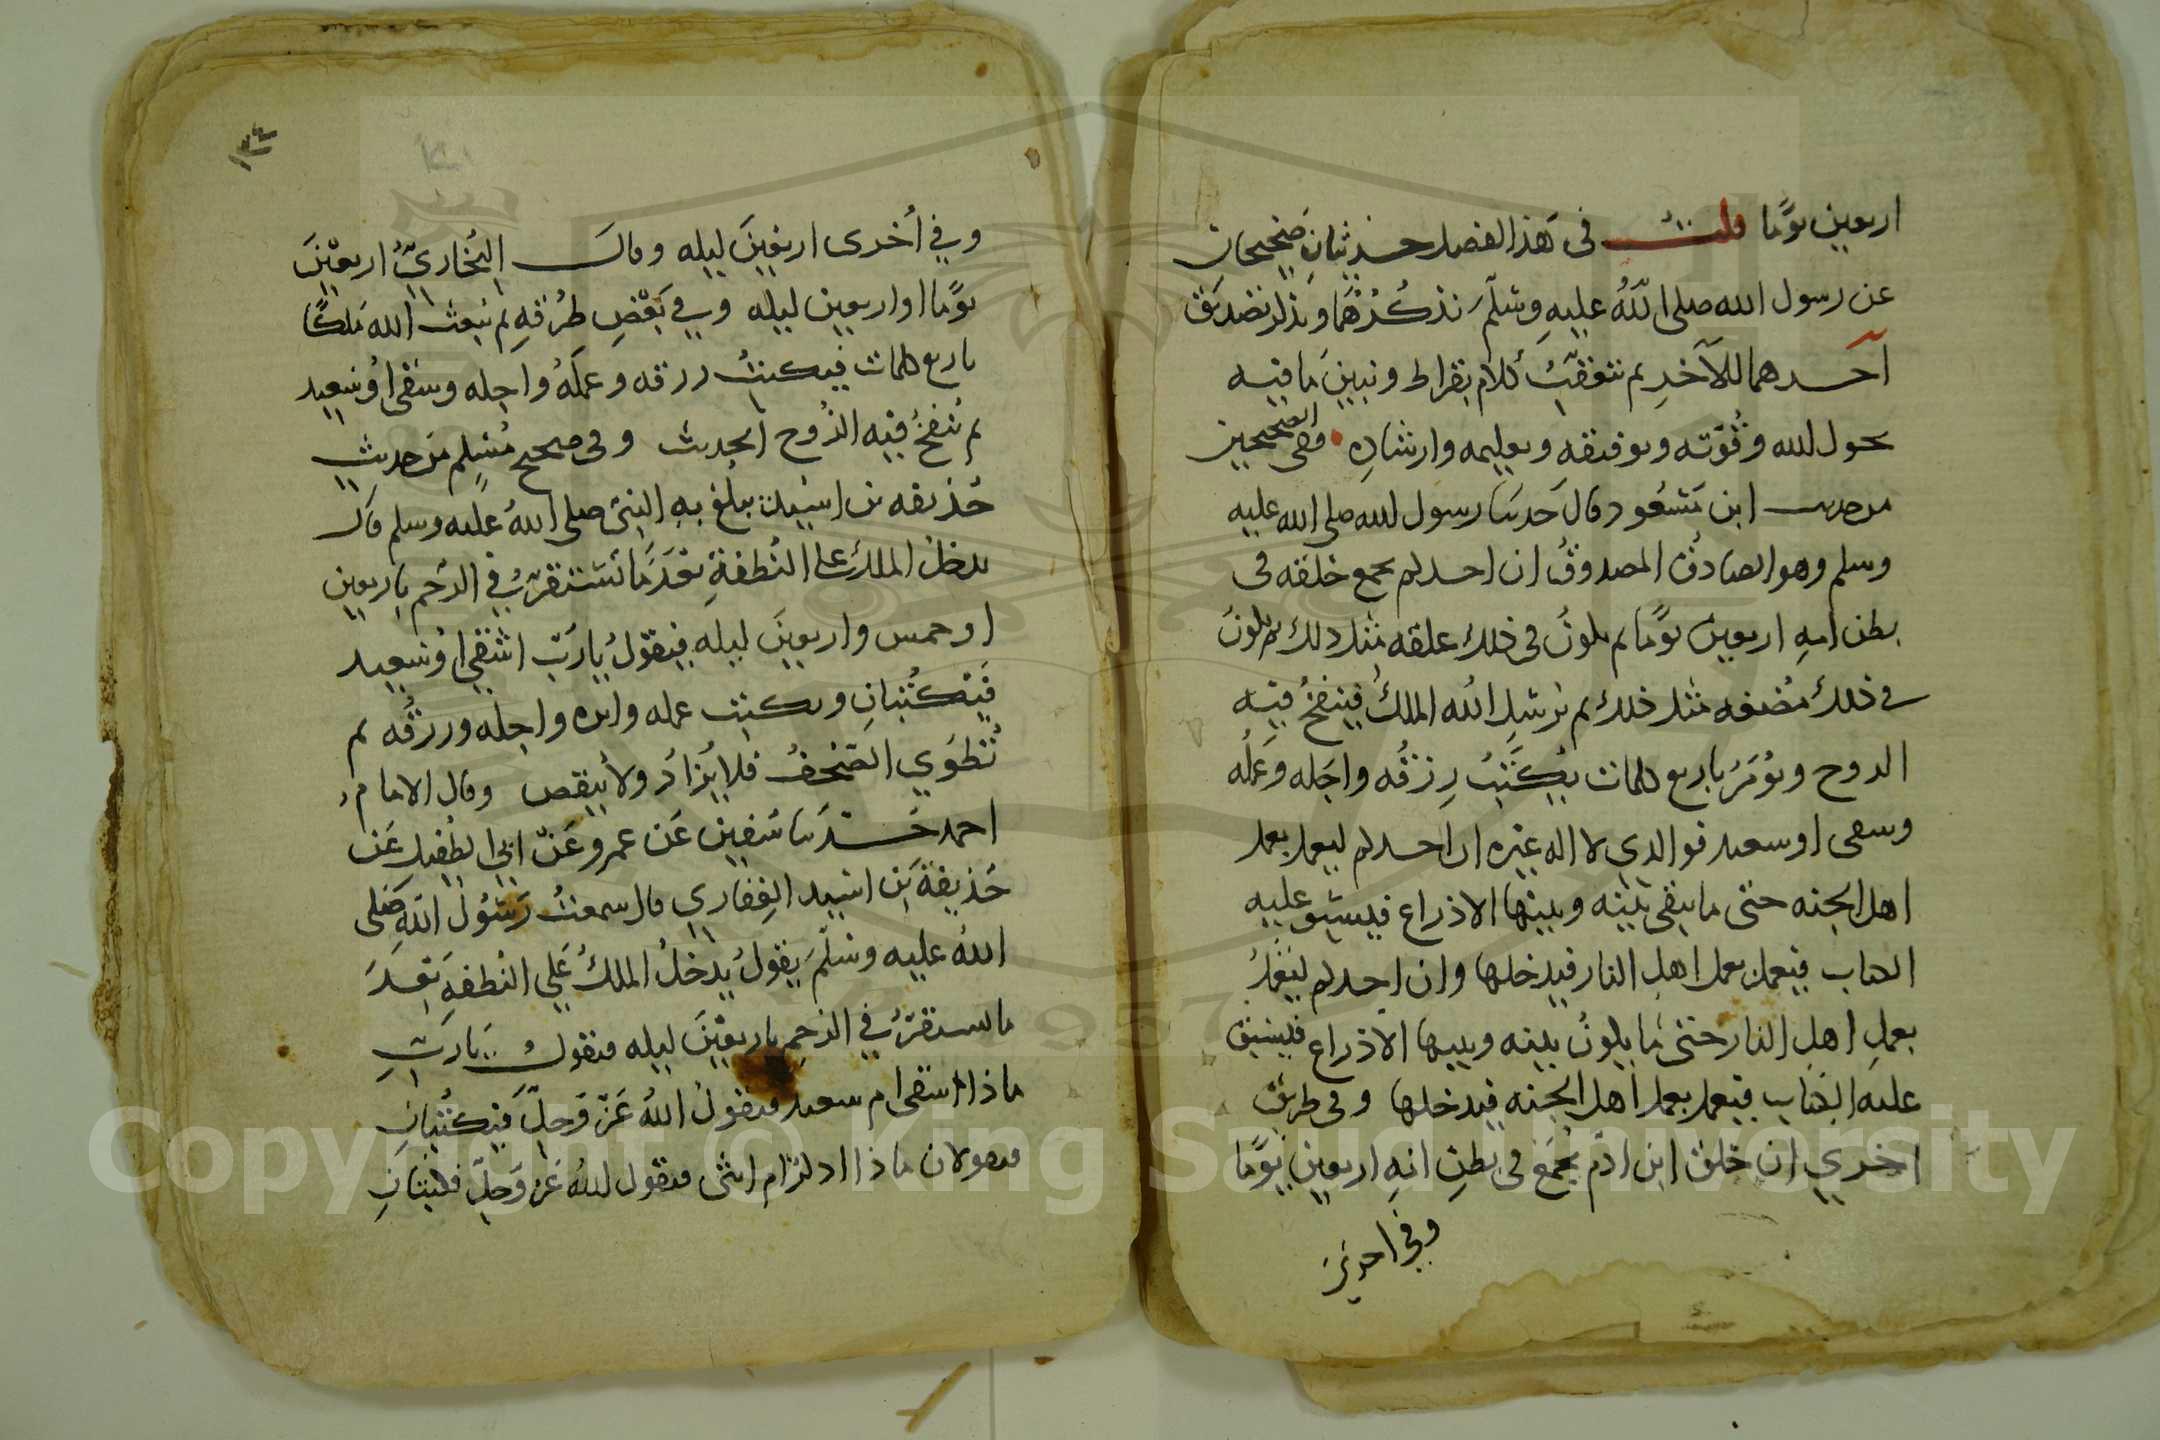 اربعين يومًا قلت في هذا الفصل حديثان صحيحان
عن رسول الله صلى اللهُ عليهِ وسَلَّمَ نذكُرُهُمَا ونذكر تصديق
أحدهما للآخرِ ثم نتعقّبُ كلام بقراط ونبين مَا فيه
بحول الله وقُوّته وتوفيقه وتعليمه وارشادِه ففي الصحيحين
من حديث ابن مَسْعُود قال حَدثنا رسول الله صلى الله عليه
وسلم وهو الصادقُ المصدوقُ ان احدكم يجمع خلقه في
بطن امهِ اربعين يومًا ثم يكونُ في ذلك علقه مثل ذلك ثم يكونُ
في ذلك مُضغه مثل ذلك ثم يُرسَلِ الله الملكُ فينفخُ فيه
الروح ويُؤمَرُ باربع كلمات يُكتَبُ رِزقُه واجَله وعَملُه
وشقى او سعيد فوالذي لا اله غيره ان احدكم ليعمل بعمل
اهل الجنه حتى ما يبقى بَينَه وبينها الا ذراع فيسبق عليه
الكتاب فيعمل بعمل اهل النار فيدخلها وان احدكم ليَعْمَلُ
بعملِ اهلِ النار حتى مَا يكونُ بينه وبينها الا ذراع فيسبق
عليه الكتاب فيعمل بعمل اهل الجنه فيدخلها وفي طريق
اخرى ان خلق ابن ادَم يُجمَعُ في بَطنِ امهِ اربعين يَومًا
وفي اخرى
١٣٤
وفي أُخرى اربعينَ ليله وقال البُخاريُّ اربعينَ
يومًا او اربعين ليله وفي بَعْضِ طُرُقهِ ثم يبعث الله مَلكًا
باربع كلمات فيكتبُ رزقه وعمَلَهُ واجله وشقى اوْ سَعيد
ثم يُنفخُ فيه الرُّوح الحديث وفي صحيح مُسْلِم من حديث
حُذيفه بن اسيد يبلغ بهِ النبىّ صلى اللهُ عليه وسلم قال
يدخل الملكُ على النُطفةِ بَعْدَ مَا تَسْتَقرُّ في الرّحم باربعين
او خمس واربعينَ ليله فيقولُ يا رَبّ اشَقِي اوْ سَعيد
فَيُكتبَانِ ويكتب عمله واثره واجلَه ورزقُه ثم
تُطوَي الصُحفُ فلا يُزادُ ولا يُنقص وقال الامامُ
احمد حَدثَنا سُفين عَن عمرو عَنْ ابي الطُفيل عَن
حُذيفةَ بَن اسَيد الغِفاري قال سمعتُ رَسُول اللهِ صَلى
اللهُ عليه وسَلّمَ يقولُ يَدْخلُ الملكُ عَلي النُطفهِ بَعْدَ
ما تستقرُ في الرَحِمِ باربعْينَ ليله فيقولُ يَا رَبِ
ماذا اشقى ام سعيد فيقولُ اللهُ عَزّ وَجلّ فَيُكتُبَانِ
فيقولان ماذا اذكرٌ ام انثى فيقول اللهُ عَز وَجلّ فيكتبَانِ